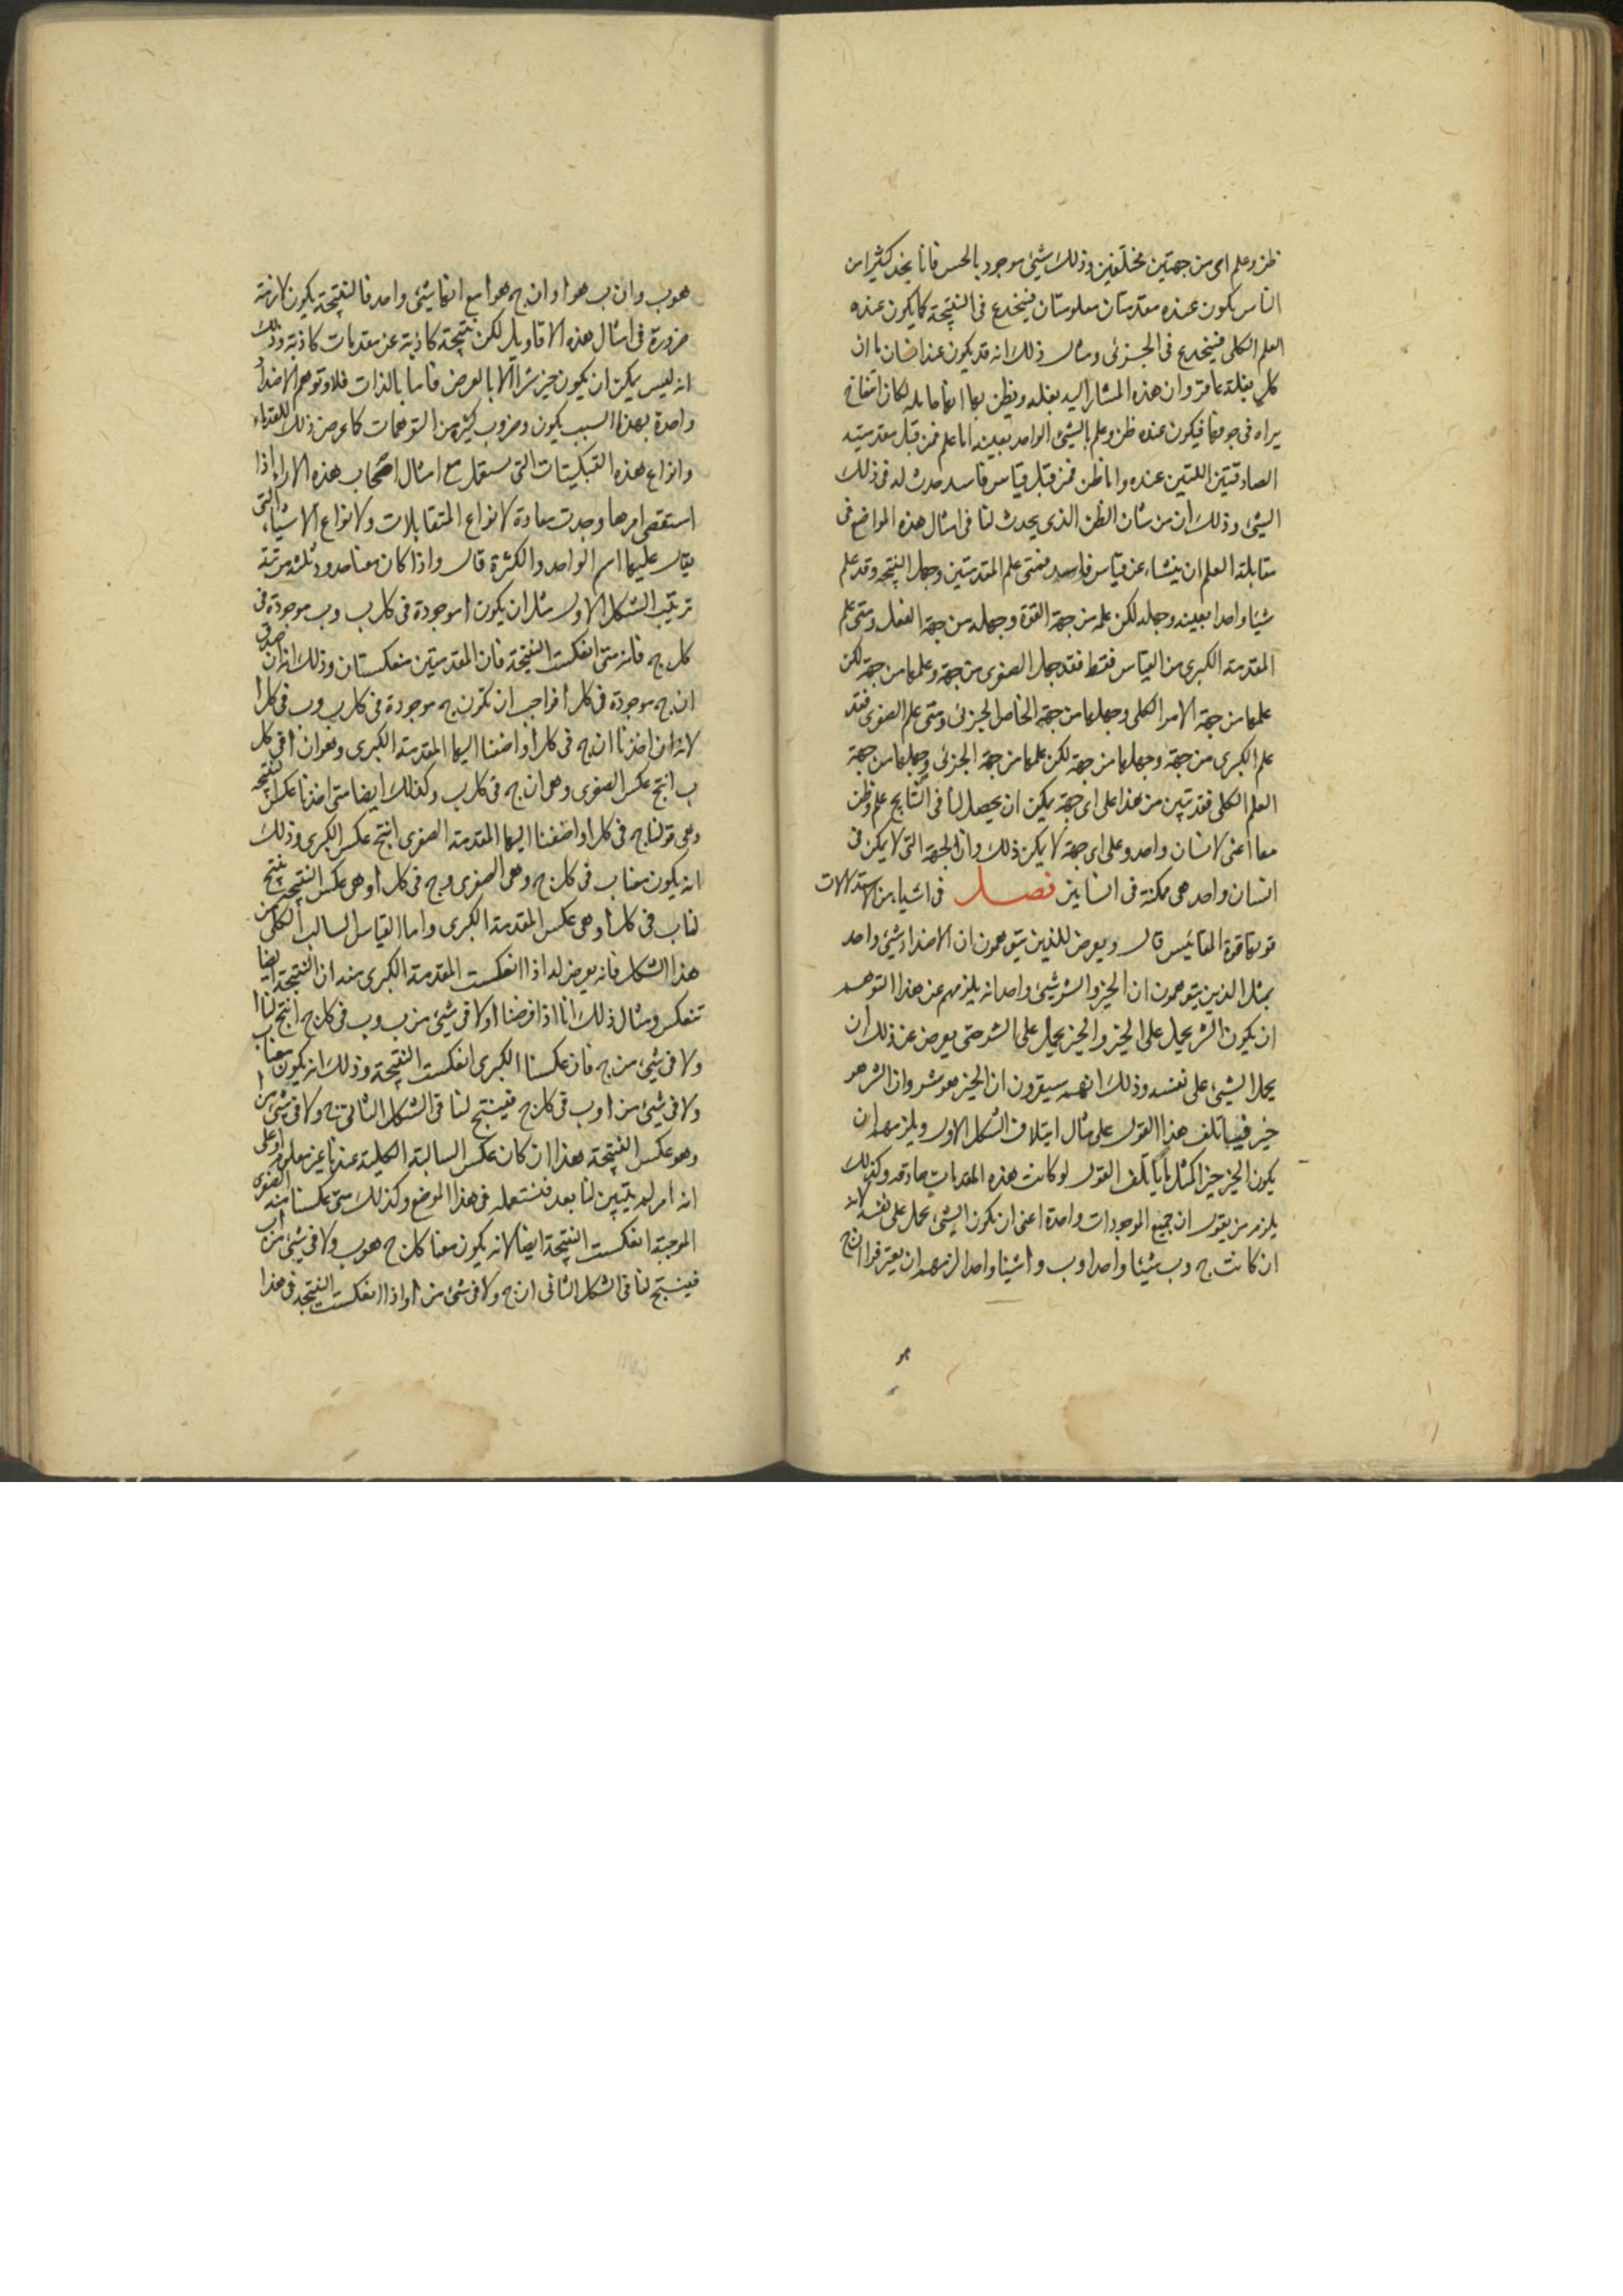 ظن وعلم امى من جهتين مختلفين وذلك شيئ موجود بالحس فانا نجد كثيرا من
الناس يكون عنده مقدمتان معلومتان فينخدع فى النتيجة كما يكون عنده
العلم الكلى فينخدع فى الجزئى ومثال ذلك انه قد يكون عند انسان ما ان
كل بغلة عاقر وان هذه المشار اليه بغلة ويظن بها انها حامل لمكان انتفاخ
يراه فى جوفها فيكون عنده ظن وعلم بالشيئ الواحد بعينه اما علم فمن قبل مقدمتيه
الصادقتين اللتين عنده واما ظن فمن قبل قياس فاسد حدث له فى ذلك
الشيئ وذلك ان من شان الظن الذى يحدث لنا فى امثال هذه المواضع فى
مقابلة العلم ان ينشاء عن قياس فاسد فمتى علم المقدمتين وجهل النتيجة وقد علم
شيئا واحدا بعينه وجهله لكن علمه من جهة القوة وجهله من جهة الفعل ومتى علم
المقدمة الكبرى من القياس فقط فقد جهل الصغرى من جهة وعلمها من جهة لكن
علمها من جهة الامر الكلى وجهلها من جهة الخاص الجزئى ومتى علم الصغرى فقد
علم الكبرى من جهة وجهلها من جهة لكن علمها من جهة الجزئى وجهلها من جهة
العلم الكلى فقد تبين من هذا على اى جهة يمكن ان يحصل لنا فى النتايج علم وظن
معا اعنى لانسان واحد وعلى اى جهة لا يمكن ذلك وان الجهة التى لا يمكن فى
انسان واحد هى ممكنة فى انسانين فصل فى اشياء من الاستدلالات
قوتها قوة المقائيس قال ويعرض للذين يتوهمون ان الاضداد شيئ واحد
بمثل الذين يتوهمون ان الخير والشر شيئ واحد انه يلزمهم عن هذا التوهم
ان يكون الشر يحمل على الخير والخير يحمل على الشر حتى يعرض عن ذلك ان
يحمل الشيئ على نفسه وذلك انهم سيقرون ان الخير هو شر وان الشر هو
خير فيياتلف هذا القول على مثال ايتلاف الشكل الاول ويلزمهم ان
يكون الخير خيرا كمثل ما ياتلف القول لو كانت هذه المقدمات صادقه وكذلك
يلزم من يقول ان جميع الموجودات واحدة اعنى ان يكون الشيئ يحمل على نفسه لانه
ان كانت ج وب شيئا واحدا وب وا شيئا واحدا لزمهم ان يعترفوا ان ج
هو ب وان ب هو ا وان ج هو ا مع انها شيئ واحد فالنتيجة يكون لازمة
ضرورة فى امثال هذه الاقاويل لكن نتيجة كاذبة عن مقدمات كاذبة وذلك
انه ليس يمكن ان يكون خير شرا الا بالعرض فاما بالذات فلا وتوهم الاضداد
واحدة بهذا السبب يكون وضروب كثيرة من التوهمات كما عرض ذلك للقدماء
وانواع هذه التبكيتات التى يستعمل مع امثال اصحاب هذه الاراء اذا
استقصى امرها وجدت معادة لانواع المتقابلات ولانواع الاشياء التى
يقال عليها اسم الواحد والكثرة قال واذا كان معنا حدود ثلثة مرتبة
ترتيب الشكل الاول مثل ان يكون ا موجودة فى كل ب وب موجودة فى
كل ج فانه متى انعكست النتيجة فان المقدمتين منعكستان وذلك انه ان صدق
ان ج موجودة فى كل ا فواجب ان تكون ج موجودة فى كل ب وب فى كل ا
لانه ان اخذنا ان ج فى كل ا واضفنا اليها المقدمة الكبرى وهو ان ا فى كل
ب انتج عكس الصغرى وهى ان ج فى كل ب وكذلك ايضا متى اخذنا عكس النتيجة
وهى قولنا ج فى كل ا واضفنا اليها المقدمة الصغرى انتج عكس الكبرى وذلك
انه يكون معنا ب فى كل ج وهى الصغرى وج فى كل ا وهى عكس النتيجة ينتج
لنا ب فى كل ا وهى عكس المقدمة الكبرى واما القياس السالب الكلى من
هذا الشكل فانه يعرض له اذا انعكست المقدمة الكبرى منه ان النتيجة ايضا
تنعكس ومثال ذلك انا اذا فرضنا ا ولا فى شيئ من ب وب فى كل ج انتج لنا ا
ولا فى شيئ من ج فان عكسنا الكبرى انعكست النتيجة وذلك انه يكون معنا ب
ولا فى شيئ من ا وب فى كل ج فينتج لنا فى الشكل الثانى ج ولا فى شيئ من ا
وهو عكس النتيجة هذا ان كان عكس السالبة الكلية عندنا غير معلوم او على
انه امر لم يتبين لنا بعد فنستعمله فى هذا الموضع وكذلك متى عكسنا منه الصغرى
الموجبة انعكست النتيجة ايضا لانه يكون معنا كل ج هو ب ولا فى شيئ من ا ب
فينتج لنا فى الشكل الثانى ان ج ولا فى شيئ من ا واذا انعكست النتيجة فى هذا